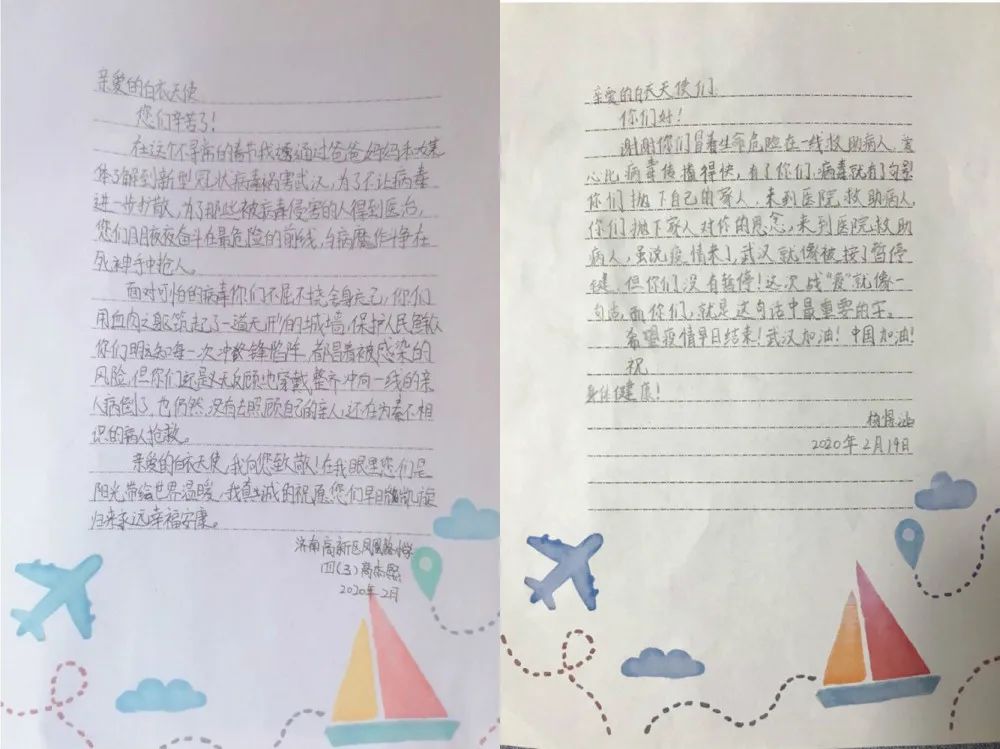 亲爱的白衣天使
您们辛苦了!
在这个不寻常的春节我透通过爸爸妈妈和媒
体了解到新型冠状病毒祸害武汉,为了不让病毒
进一步扩散,为了那些被病毒侵害的人得到医治,
您们日日夜夜奋斗在最危险的前线,与病魔作斗争在
死神手中抢人。
面对可怕的病毒你们不屈不挠舍身忘己,你们
用血肉之躯筑起了一道无形的城墙,保护人民
你们明知每一次冲锋陷阵,都冒着被感染的
风险,但你们还是义无反顾地穿戴整齐冲向一线的亲
人病倒了,也仍然没有去照顾自己的亲人,还在为素不相
识的病人抢救。
亲爱的白衣天使,我向您致敬!在我眼里您们是
阳光带给世界温暖,我真诚的祝愿您们早日凯旋
归来永远幸福安康。
济南高新区凤凰路小学
四(3)
2020年2月
亲爱的白天天使们
你们好!
谢谢你们冒着生命危险在一线救助病人,爱
心比病毒传播得快,有了你们,病毒就有了
你们抛下自己的家人,来到医院救助病人,
你们抛下家人对你的思念,来到医院救助
病人,虽说疫情来了,武汉就像被按了暂停
键,但你们没有暂停!这次战“疫”就像一
句话,而你们,就是这句话中最重要的字。
希望疫情早日结束!武汉加油!中国加油!
祝
身体健康!
2020年2月19日